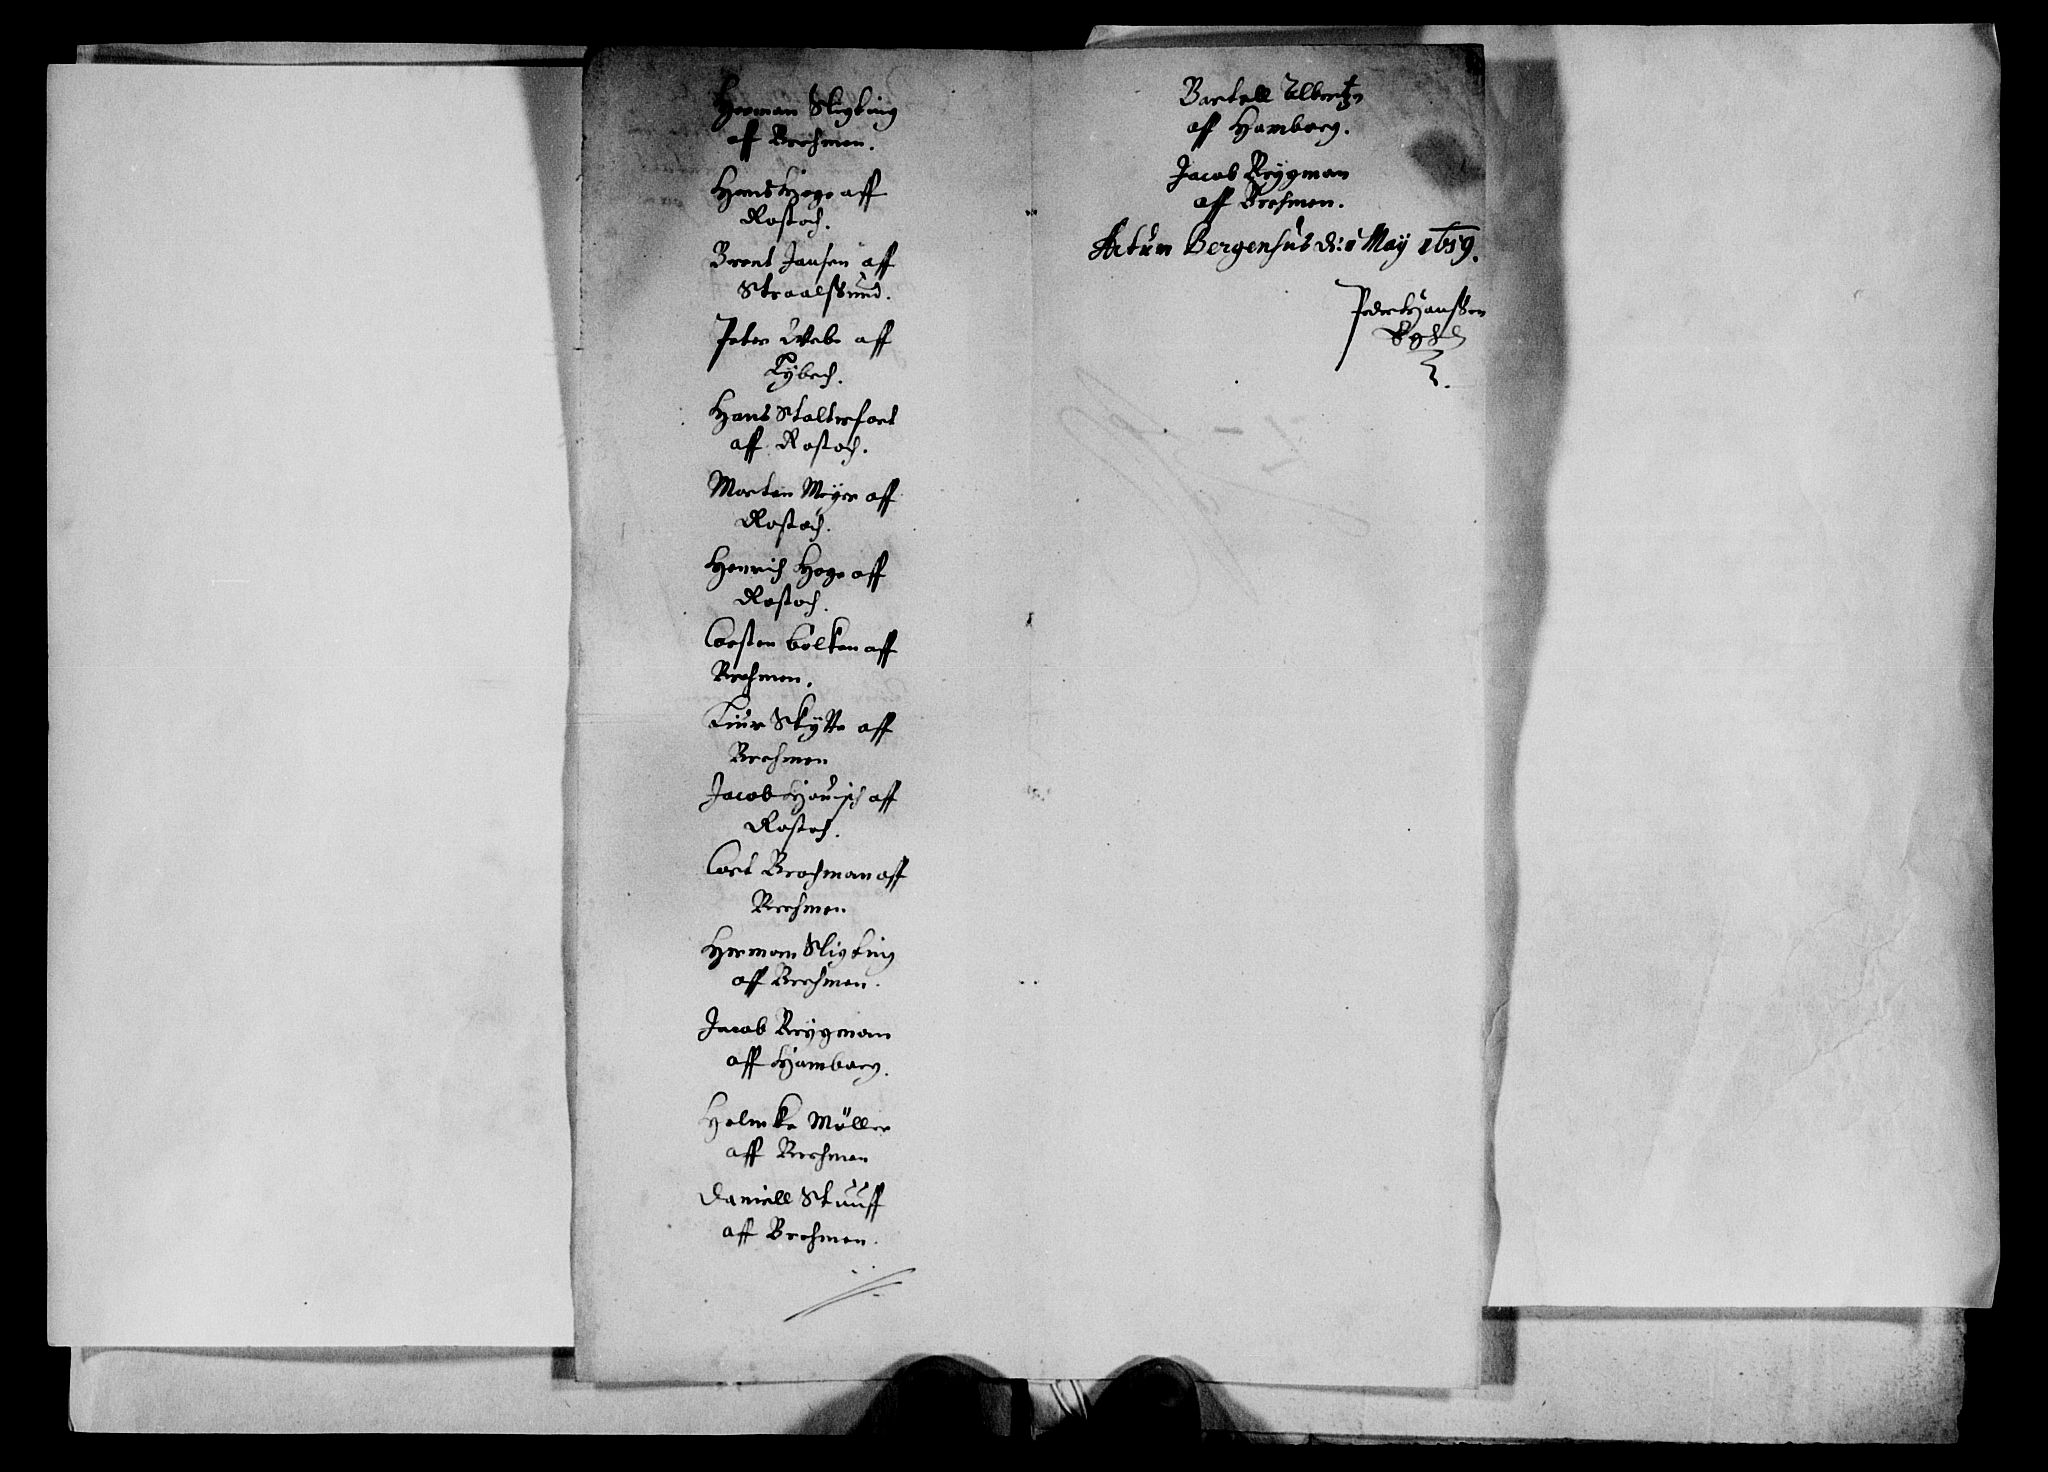 Herman Sligking
aff Brehmen.
Hans Hoge aff
Rostoch.
Brent Jansen aff
Straalssund.
Peter Webe aff
Lybech.
Hans Stalterfoet
aff Rostoch.
Morten Meyer aff
Rostoch.
Henrich Hoge aff
Rostoch.
Corsten Bolken aff
Brehmen.
Liur Skytte aff
Brehmen
Jacob Hanisch aff
Rostoch.
Cort Brochman aff
Brehmen
Herman Sligking
aff Brehmen.
Jacob Brygman
aff Hamborg.
Helmke Möller
aff Brehmen
Daniell Stuuff
aff Brehmen.
Bartell Albertzn
aff Hamborg.
Jacob Brygman
aff Brehmen.
Actum Bergenhus d: 1 May 1659.
Peder Hanssen